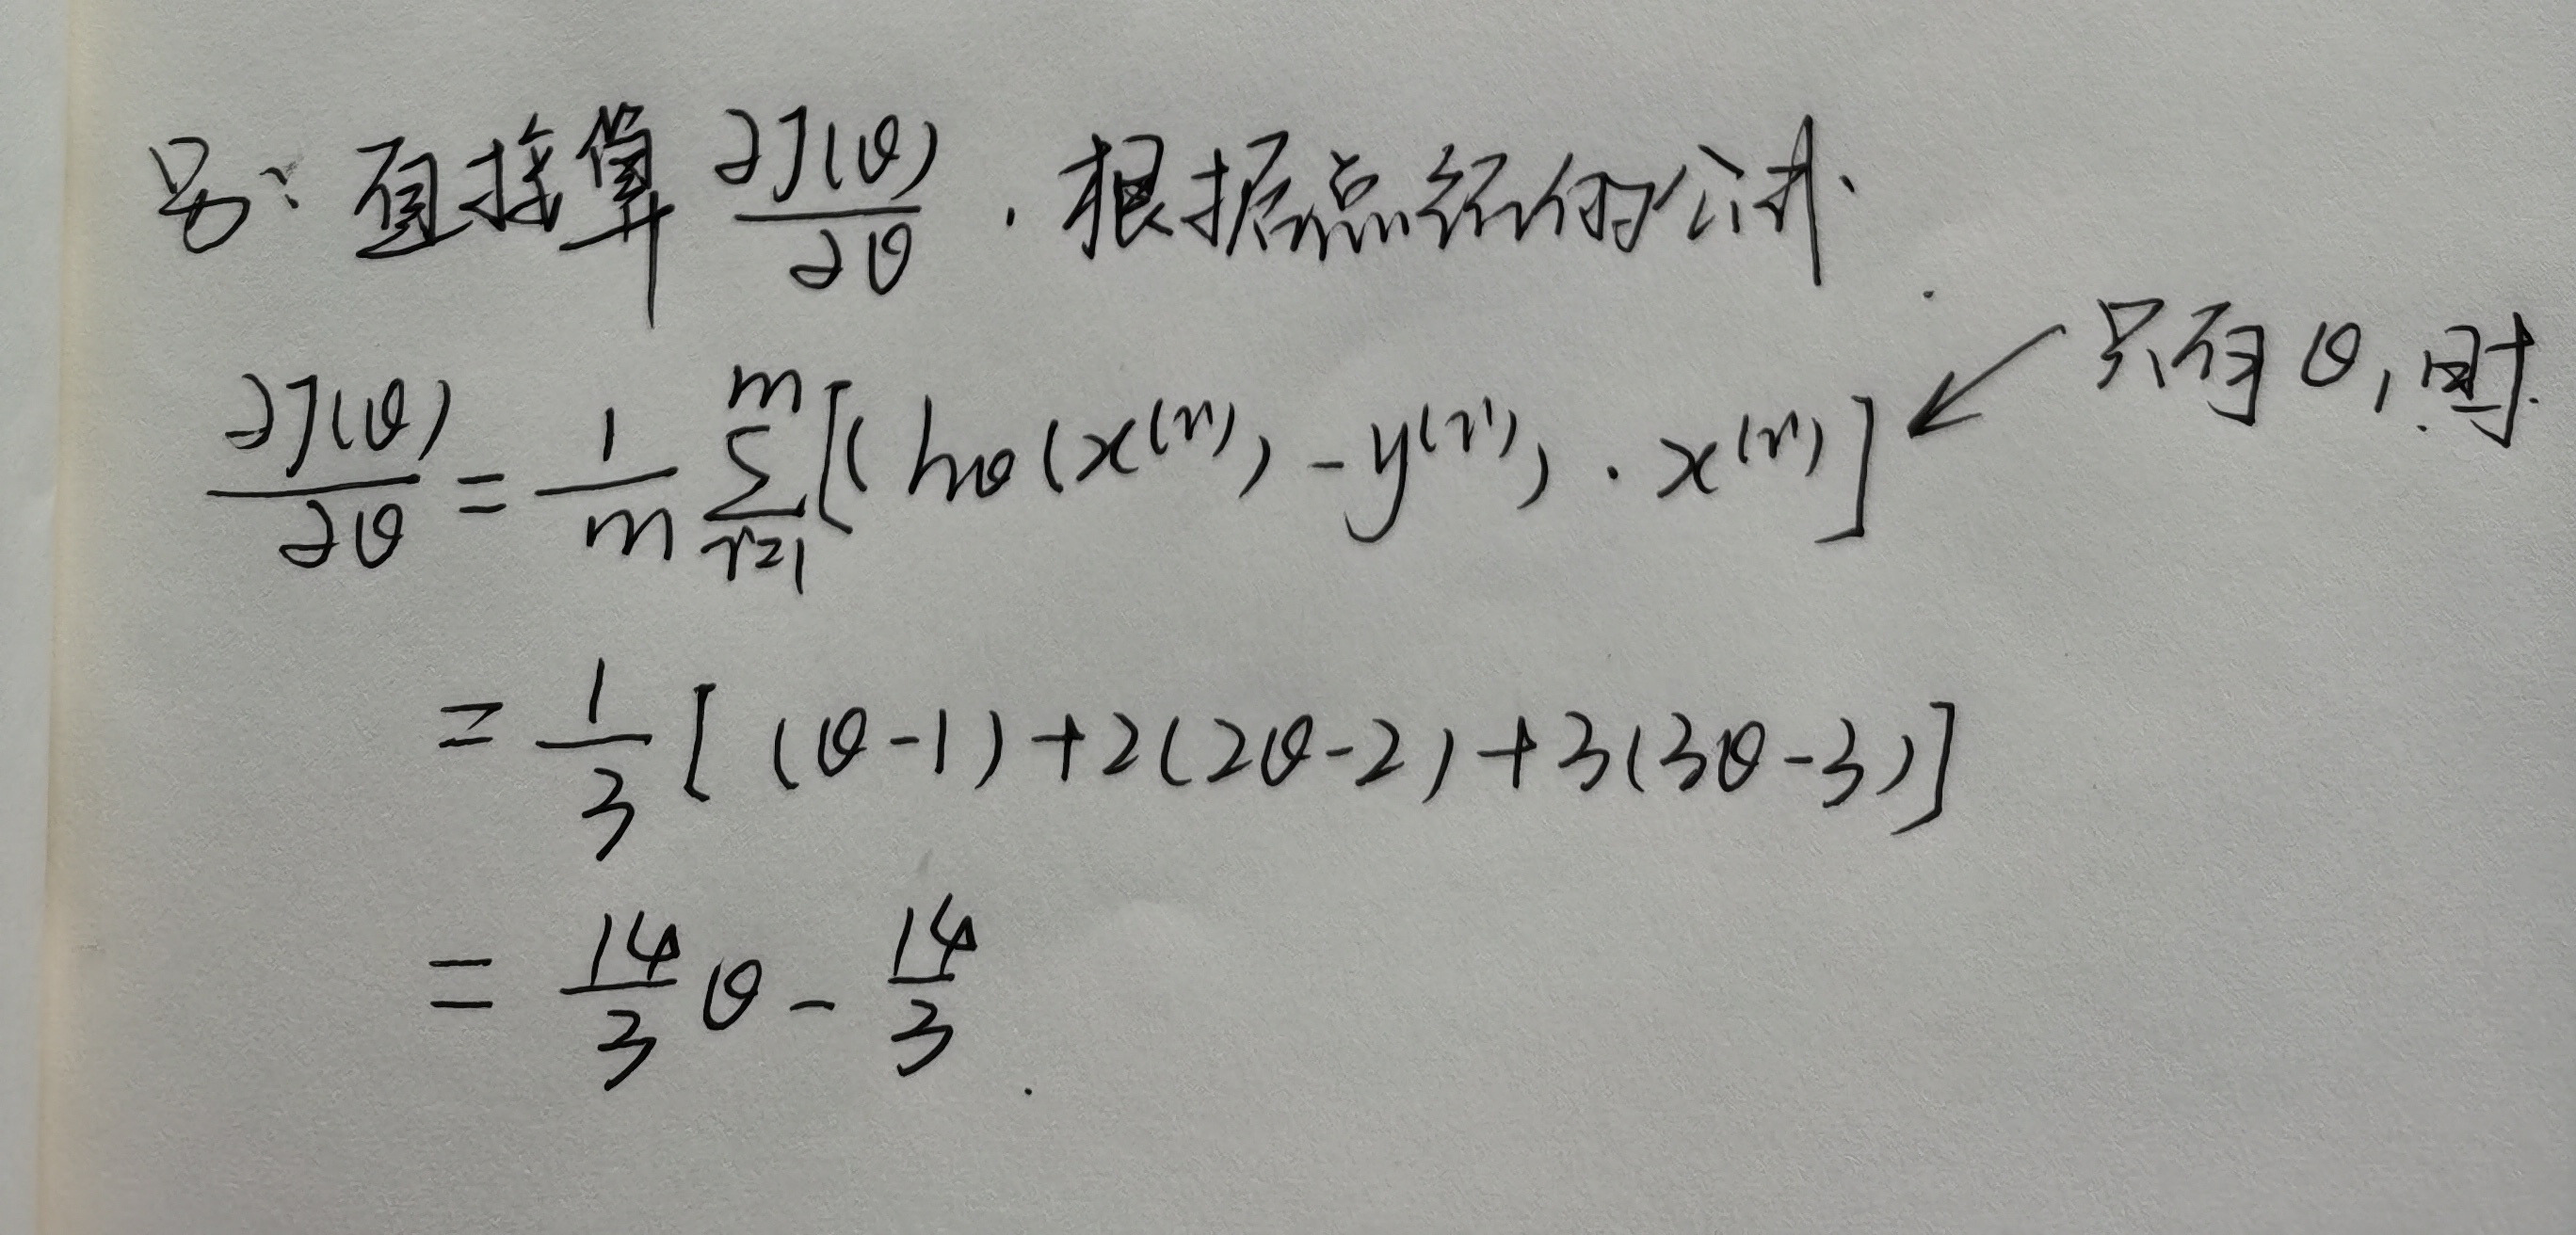 另：直接算 ∂J(θ)/∂θ . 根据总结的公式.
∂J(θ)/∂θ = 1/m ∑_{i=1}^{m} [(hθ(x^{(i)}) - y^{(i)}) · x^{(i)}] ← 只有θ₁时.
= 1/3 [ (θ-1) + 2(2θ-2) + 3(3θ-3)]
= 14/3 θ - 14/3 .